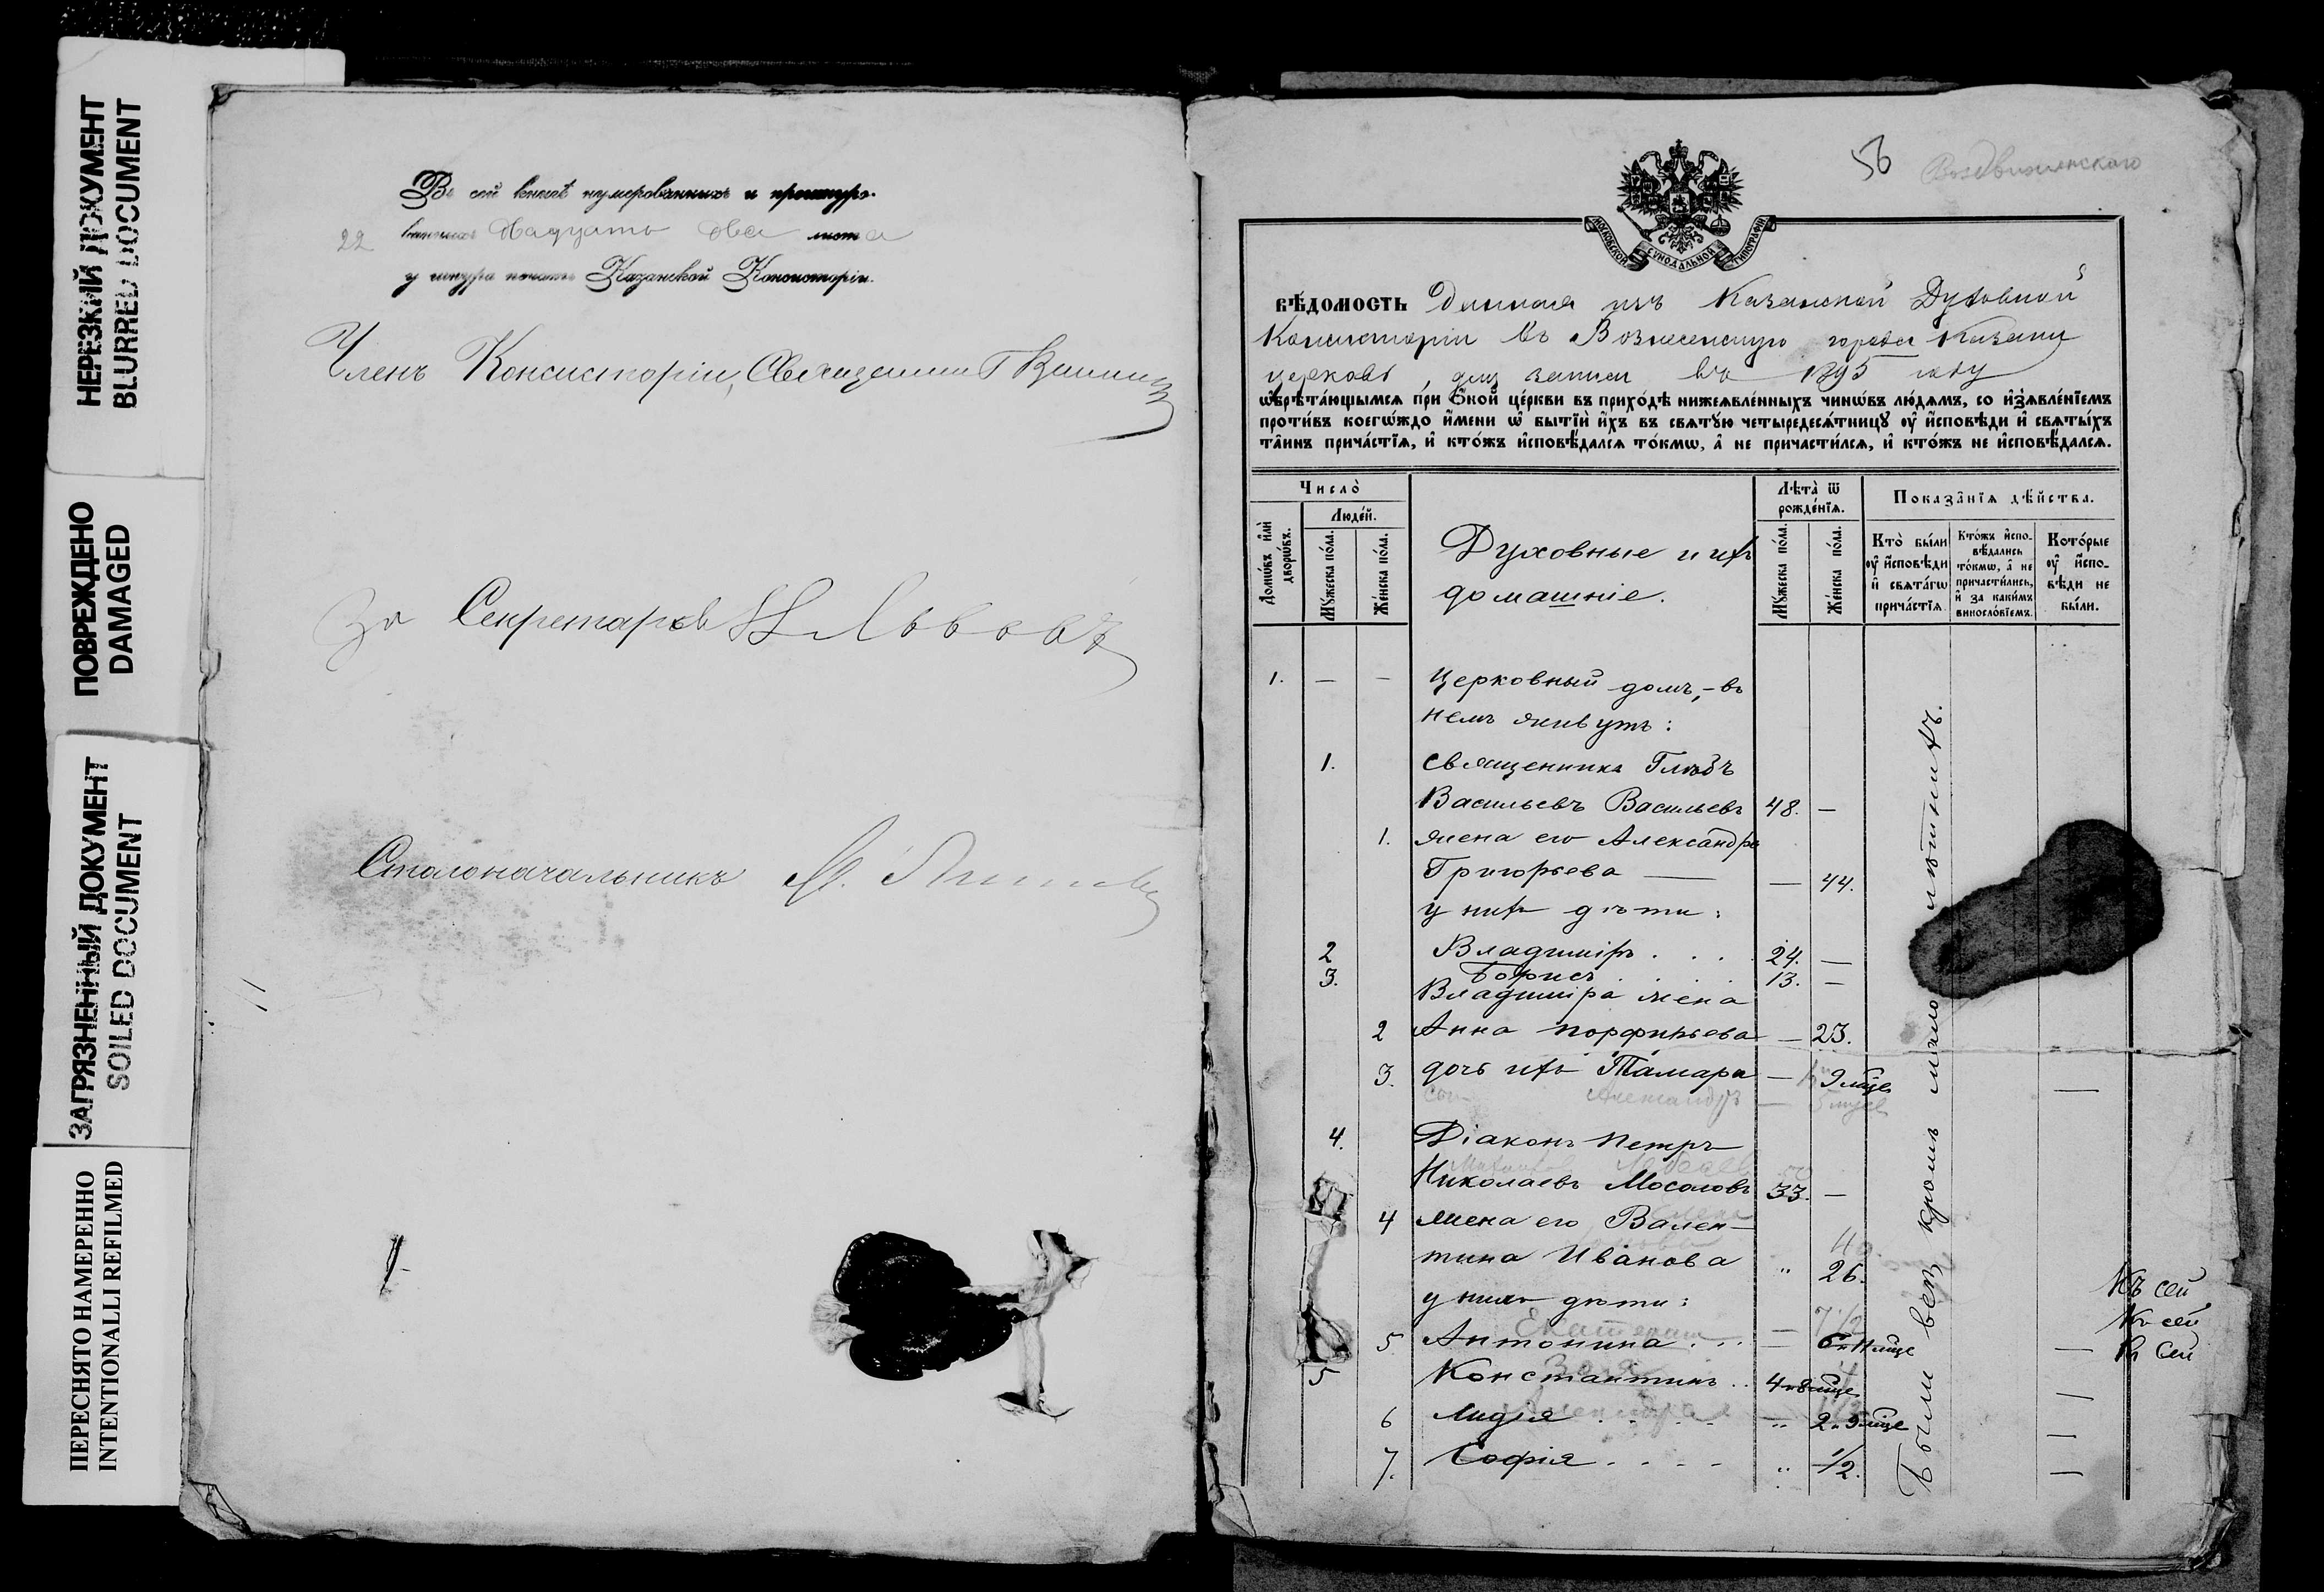 НЕРЕЗКИЙ ДОКУМЕНТ
BLURRED DOCUMENT
ПОВРЕЖДЕНО
DAMAGED
ЗАГРЯЗНЕННЫЙ ДОКУМЕНТ
SOILED DOCUMENT
ПЕРЕСНЯТО НАМЕРЕННО
INTENTIONALLI REFILMED
Въ сей книгѣ нумерованныхъ и прошнуро-
22 ванныхъ двадцать два листа
у шнура печать Казанской Консисторіи.
Членъ Консисторіи, Священникъ
За Секретаря Н Львовъ
Столоначальникъ
56 Воздвиженскаго
МОСКОВСКОЙ СѴНОДАЛЬНОЙ ТИПОГРАФІИ
ВѢДОМОСТЬ Данная изъ Казанской Духовной
Консисторіи въ Вознесенскую города Казани
церковь, для записи въ 1895 году
ѡ҆брѣта́ющымсѧ при ѻ҆́ной це́ркви въ прихо́дѣ нижеѧвле́нныхъ чинѡ́въ лю́дѧмъ, со и҆з̾ѧвле́нїемъ
проти́въ коегѡ́ждо и҆́мени ѡ҆ бытїѝ и҆́хъ въ свѧтꙋ́ю четыредесѧ́тницꙋ ᲂу҆ и҆́сповѣди и҆ свѧты́хъ
та̑инъ прича́стїѧ, и҆ кто́жъ и҆сповѣ́далсѧ то́кмѡ, а҆ не причасти́лсѧ, и҆ кто́жъ не и҆сповѣ́далсѧ.
Число̀
Люде́й.
Домѡ́въ и҆лѝ дворѡ́въ.
Мꙋ́жеска по́ла.
Же́нска по́ла.
Духовные и ихъ
домашніе.
Лѣта̀ ѿ рожде́нїѧ.
Мꙋ́жеска по́ла.
Же́нска по́ла.
Показа̑нїѧ дѣ́йства.
Кто̀ бы́ли ᲂу҆ и҆́сповѣди и҆ свѧта́гѡ прича́стїѧ.
Кто́жъ и҆спо-вѣ́дались то́кмѡ, а҆ не причасти́лись, и҆ за каки́мъ виносло́вїемъ.
Кото́рые ᲂу҆ и҆́спо-вѣди не бы́ли.
1. — — Церковный домъ,-въ
немъ живутъ:
1. Священникъ Глѣбъ
Васильевъ Васильевъ 48. —
1. жена его Александра
Григорьева — — 44.
у нихъ дѣти:
2 Владиміръ . . . 24. —
3. Борисъ . . . . 13. —
Владиміра жена
2 Анна Порфирьева — 23.
3. дочь ихъ Тамара — 9 мце
сынъ Александръ — 5 мцев
4. Діаконъ Петръ
Николаевъ Мосоловъ 33. —
4 жена его Вален-
тина Иванова „ 26.
у нихъ дѣти:
Екатерина — 7 1/2
5 Антонина . . . — 6 и 11 мце —
5 Константинъ . . 4 и 8 мце —
6 Лидія . . . . „ 2 и 9 мце —
7. Софія . . . . „ 1/2. —
Были все кромѣ малолѣтнихъ.
Къ сей
Къ сей
Къ сей